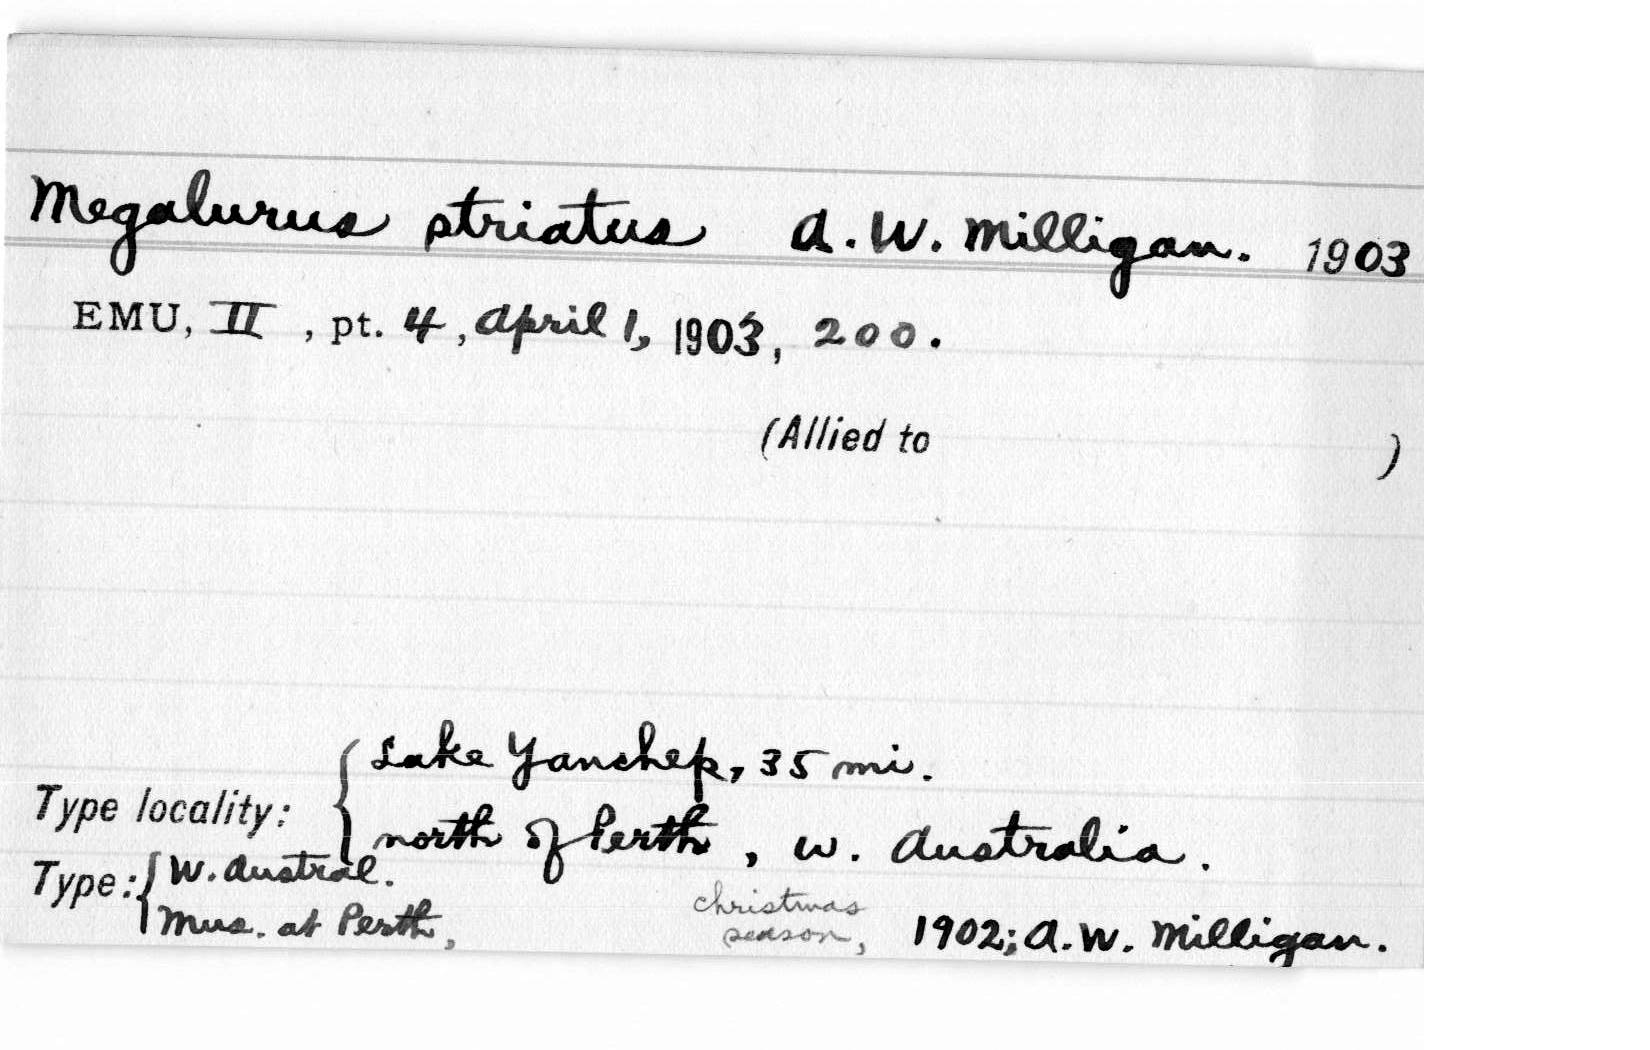 Megalurus striatus A. W. Milligan. 1903
EMU, II, pt. 4, April 1, 1903, 200.
(Allied to )
Type locality: { Lake Yanchep, 35 mi.
north of Perth, W. Australia.
Type: { W. Austral.
Mus. at Perth, Christmas season, 1902; A. W. Milligan.